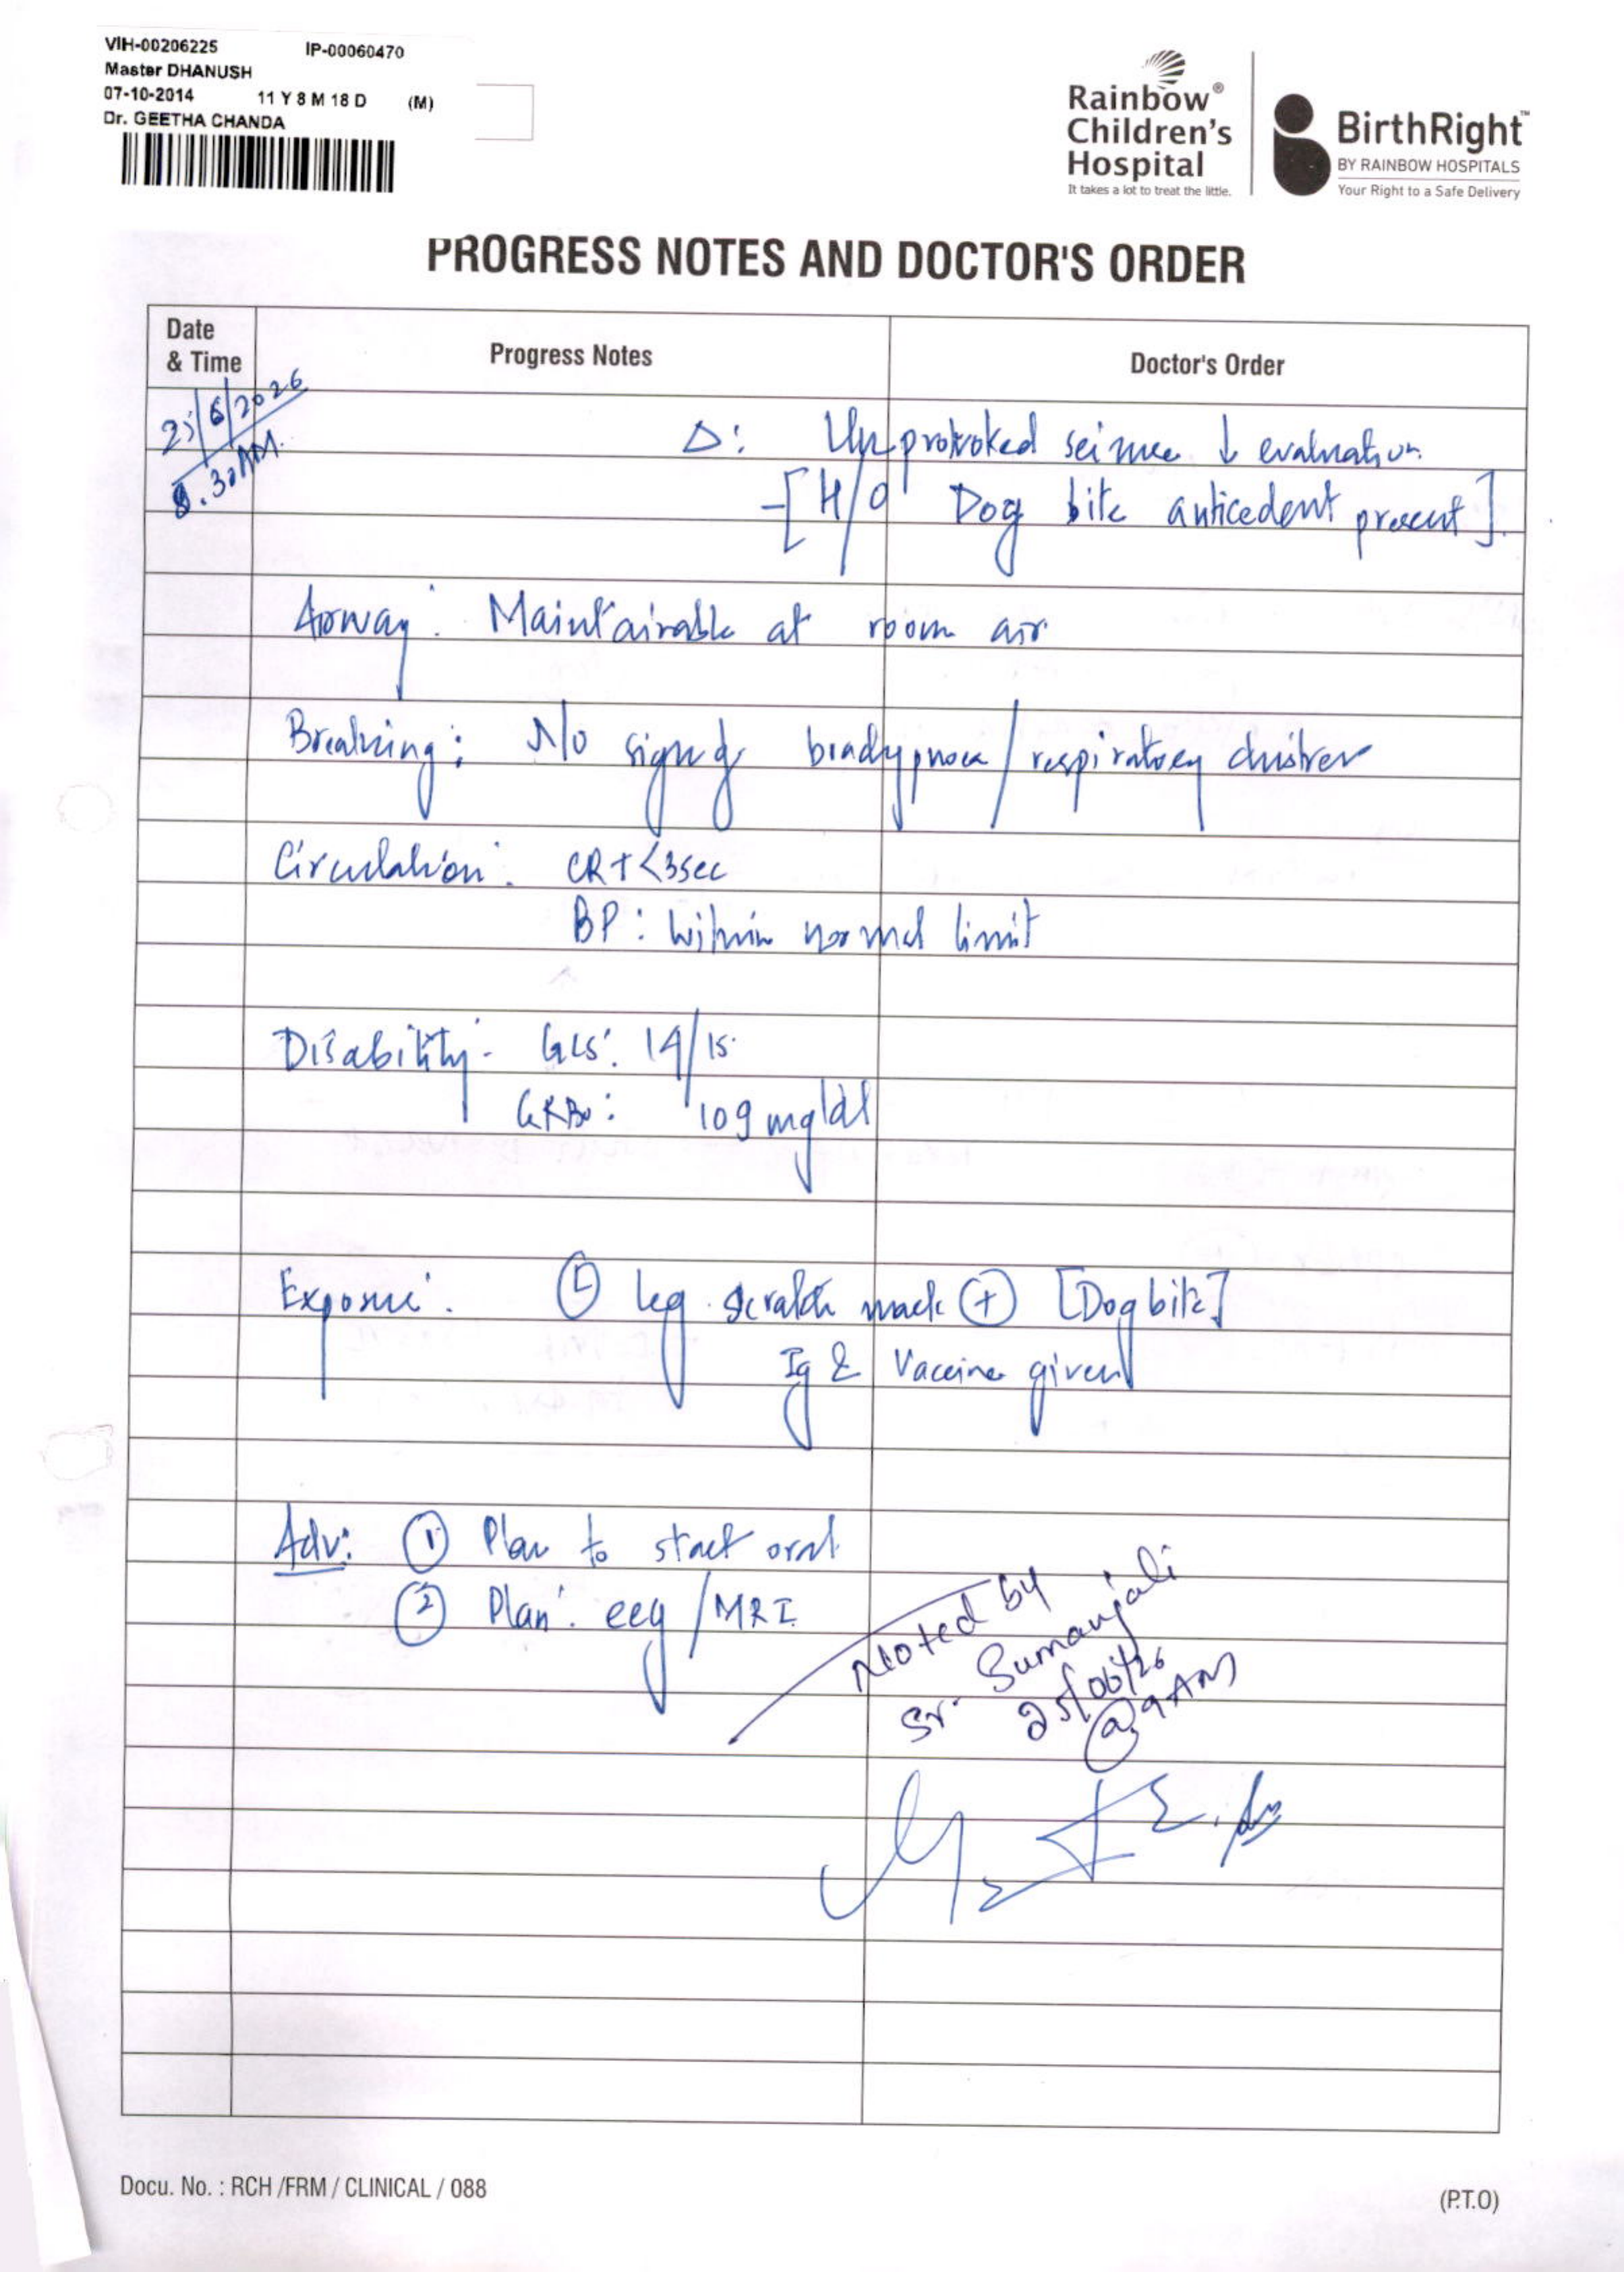 VIH-00206225 IP-00060470
Master DHANUSH
07-10-2014 11 Y 8 M 18 D (M)
Dr. GEETHA CHANDA
Rainbow®
Children's
Hospital
It takes a lot to treat the little.
BirthRight™
BY RAINBOW HOSPITALS
Your Right to a Safe Delivery
PROGRESS NOTES AND DOCTOR'S ORDER
Date
& Time
Progress Notes
Doctor's Order
25/6/2026
8.30AM.
Δ: Unprovoked seizure ↓ evaluation.
-[H/O Dog bite anticedent present].
Airway: Maintainable at room air
Breathing: No signs of bradypnoea/respiratory distress
Circulation: CRT <3sec
BP: Within normal limit
Disability: GCS: 14/15.
GRBS: 109 mg/dl
Exposure: Ⓛ leg scratch mark ⊕ [Dog bite]
Ig & Vaccine given
Adv: ① Plan to start oral.
② Plan: eeg/MRI
Noted by
Sr. Sumanjali
25/06/26
@ 9AM
Docu. No. : RCH /FRM / CLINICAL / 088
(P.T.O)